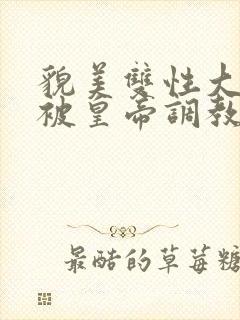 貌美雙性大
被皇帝調教
最酷的草莓糖